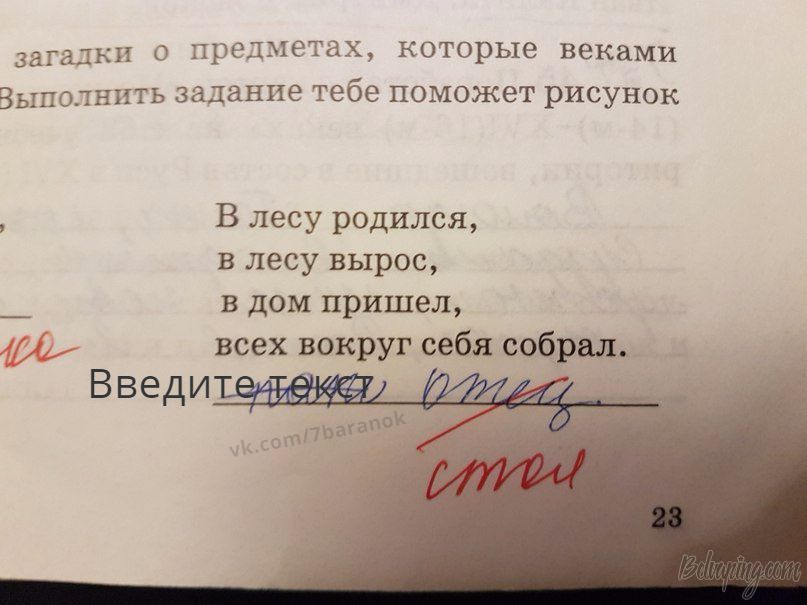 загадки о предметах, которые веками
Выполнить задание тебе поможет рисунок
В лесу родился,
в лесу вырос,
в дом пришел,
всех вокруг себя собрал.
ка
Введите текст
отец.
vk.com/7baranok
стол
23
Bcluping.com